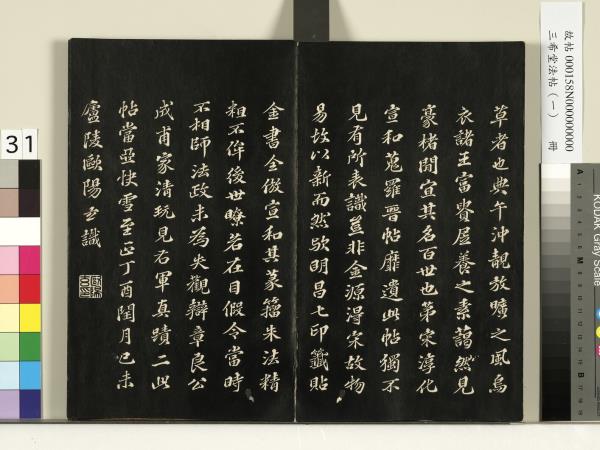 草者也典午沖靚放曠之風烏
衣諸王富貴居養之素藹然見
豪楮閒宣其名百世也第宋淳化
宣和蒐羅晉帖靡遺此帖獨不
見有所表識豈非金源得宋故物
易故以新而然歟明昌七印籤貼
金書全倣宣和其篆籀朱法精
粗不侔後世瞭若在目假令當時
不相師法政未為失觀辯章良公
成甫家清玩見右軍真蹟二此
帖當並快雪至正丁酉閏月己未
廬陵歐陽玄識
故帖 000158N000000000
三希堂法帖(一) 冊
31
KODAK Gray Scale
A
M
B